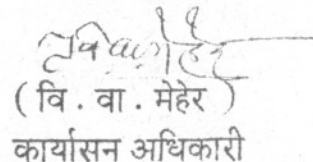 ( वि . वा . मेहेर )
कार्यासन अधिकारी